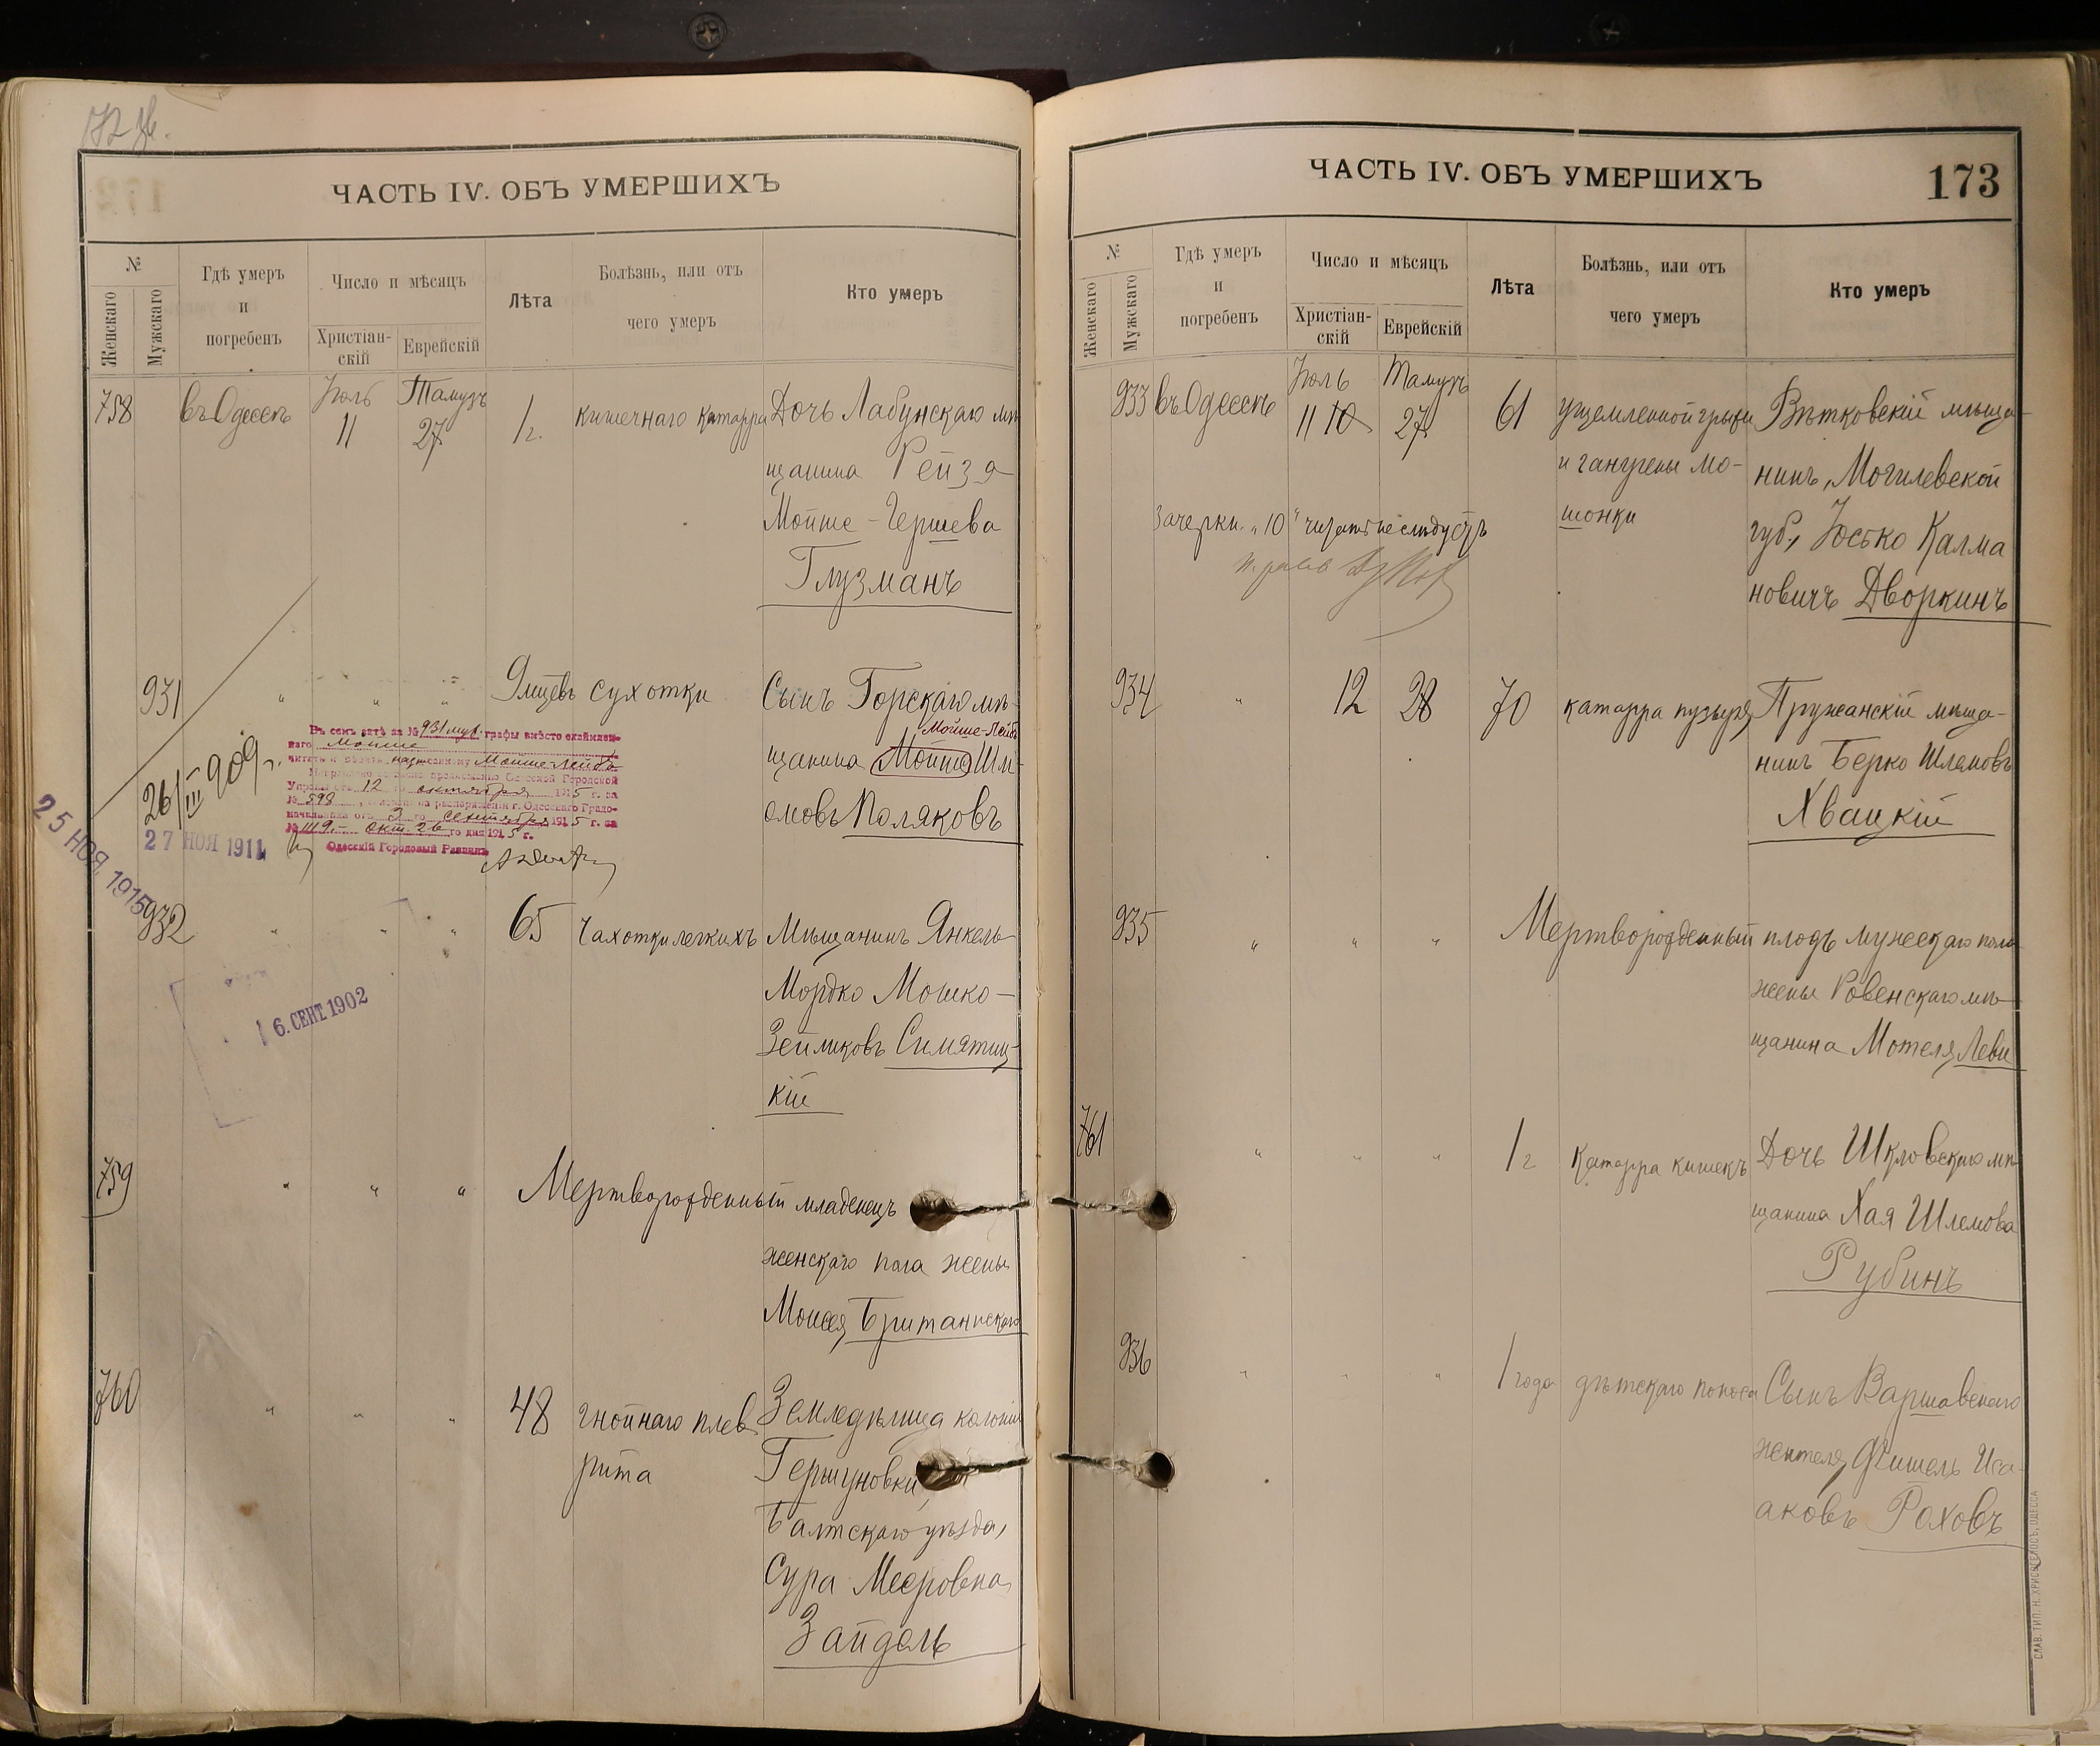 ЧАСТЬ IV. ОБЪ УМЕРШИХЪ
№
Женскаго
Мужскаго
Гдѣ умеръ
и
погребенъ
Число и мѣсяцъ
Христіан-
скій
Еврейскій
Лѣта
Болѣзнь, или отъ
чего умеръ
Кто умеръ
758 въ Одессѣ Іюль 11 Тамузъ 27 1 г. кишечнаго катарра Дочь Лабунскаго мѣ-
щанина Рейзя
Мойше-Гершева
Глузманъ
931 " " " 9 мцевъ сухотки Сынъ Горскаго мѣ-
Мойше-Лейба
щанина Мойше Шл-
омовъ Поляковъ
26/III 909 г.
Въ семъ актѣ за № 931 муж. графы вмѣсто
наго Мойше
Мойше Лейба
Городской
Управы отъ 12 го октября 1915 г. за
№ 598, распоряженія г. Одесскаго Градо-
начальника отъ 3 го сентября 1915 г. за
№ 1119. окт. 26 го дня 1915 г.
Одесскій Городовый Раввинъ
27 НОЯ 1911
25 НОЯ. 1915
932 " " " 65 чахотки легкихъ Мѣщанинъ Янкель-
Мордко Мошко-
Зейликовъ Симятиц-
кій
6. СЕНТ 1902
759 " " " Мертворожденный младенецъ
женскаго пола жены
Моисея Британискаго
760 " " " 48 гнойнаго плев- Земледѣлица колоніи
рита Гершуновки,
Балтскаго уѣзда,
Сура Мееровна
Зайдель
ЧАСТЬ IV. ОБЪ УМЕРШИХЪ
173
№
Женскаго
Мужскаго
Гдѣ умеръ
и
погребенъ
Число и мѣсяцъ
Христіан-
скій
Еврейскій
Лѣта
Болѣзнь, или отъ
чего умеръ
Кто умеръ
933 въ Одессѣ Іюль 11 10 Тамузъ 27 61 ущемленной грыжи Вѣтковскій мѣща-
и гангрены мо- нинъ, Могилевской
Зачеркн. „10“ читать не слѣдуетъ шонки губ., Юсько Калма
новичъ Дворкинъ
934 " 12 28 70 катарра пузыря Пружанскій мѣща-
нинъ Берко Шлемовъ
Хвацкій
935 " " " Мертворожденный плодъ мужескаго пола
жены Ровенскаго мѣ-
щанина Мотеля Леви
761 " " " 1 г катарра кишекъ Дочь Шкловскаго мѣ-
щанина Хая Шлемова
Рубинъ
936 " " " 1 года дѣтскаго поноса Сынъ Варшавскаго
жителя Фишель Иса-
аковъ Роховъ
СЛАВ. ТИП. Н. ХРИСОГЕЛОСЪ, ОДЕССА